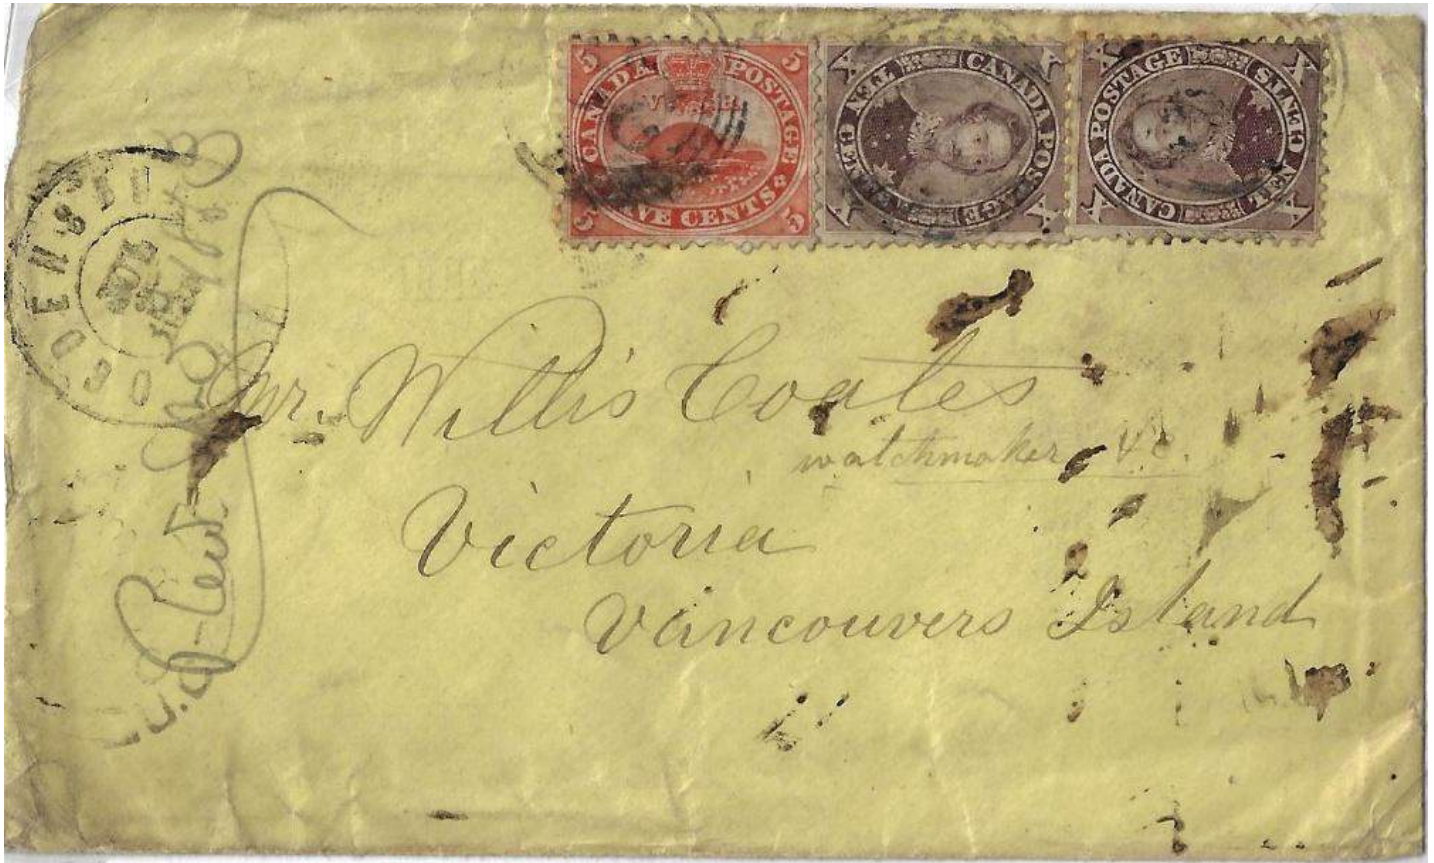 5 5
CANADA POSTAGE
V R
FIVE CENTS
5 5
X X
CANADA POSTAGE
TEN CENTS
X X
X X
CANADA POSTAGE
TEN CENTS
X X
OGDENSBU
Mr. Willis Coates
watchmaker &c.
Victoria
Vancouvers Island